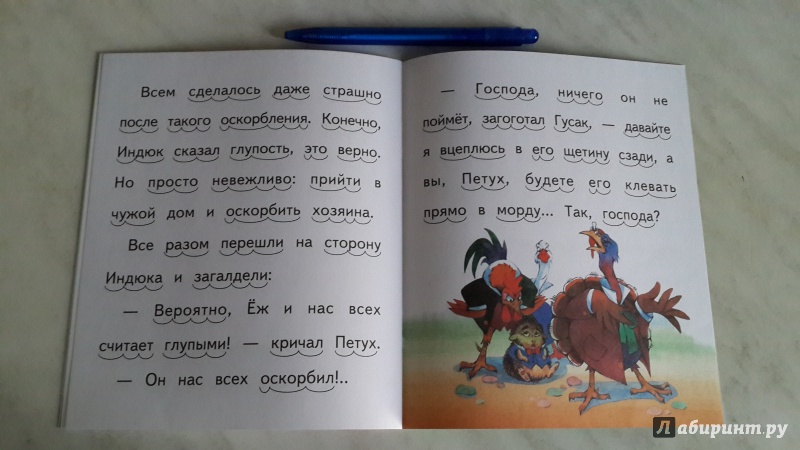 Всем сделалось даже страшно
после такого оскорбления. Конечно,
Индюк сказал глупость, это верно.
Но просто невежливо: прийти в
чужой дом и оскорбить хозяина.
Все разом перешли на сторону
Индюка и загалдели:
— Вероятно, Ёж и нас всех
считает глупыми! — кричал Петух.
— Он нас всех оскорбил!..
— Господа, ничего он не
поймёт, загоготал Гусак, — давайте
я вцеплюсь в его щетину сзади, а
вы, Петух, будете его клевать
прямо в морду... Так, господа?
Лабиринт.ру